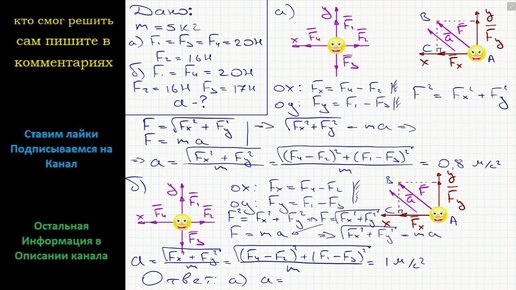 кто смог решить
сам пишите в
комментариях
Ставим лайки
Подписываемся на
Канал
Остальная
Информация в
Описании канала
Дано:
m = 5 кг
а) F₁ = F₃ = F₄ = 20Н
F₂ = 16Н
б) F₁ = F₄ = 20Н
F₂ = 16Н F₃ = 17Н
a - ?
а)
y
F₁
x F₄ F₂
F₃
B F
C a Fy
x Fx A
ox: Fx = F₄ - F₂
oy: Fy = F₁ - F₃
F² = Fx² + Fy²
F = √(Fx² + Fy²)
F = ma
⇒ √(Fx² + Fy²) = ma ⇒
⇒ a = √(Fx² + Fy²) / m = √((F₄ - F₂)² + (F₁ - F₃)²) / m = 0,8 м/с²
б)
y
F₁
x F₄ F₂
F₃
ox: Fx = F₄ - F₂
oy: Fy = F₁ - F₃
F² = Fx² + Fy² ⇒ F = √(Fx² + Fy²)
F = ma ⇒ √(Fx² + Fy²) = ma
B F
C a Fy
x Fx A
a = √(Fx² + Fy²) / m = √((F₄ - F₂)² + (F₁ - F₃)²) / m = 1 м/с²
Ответ: а) a =